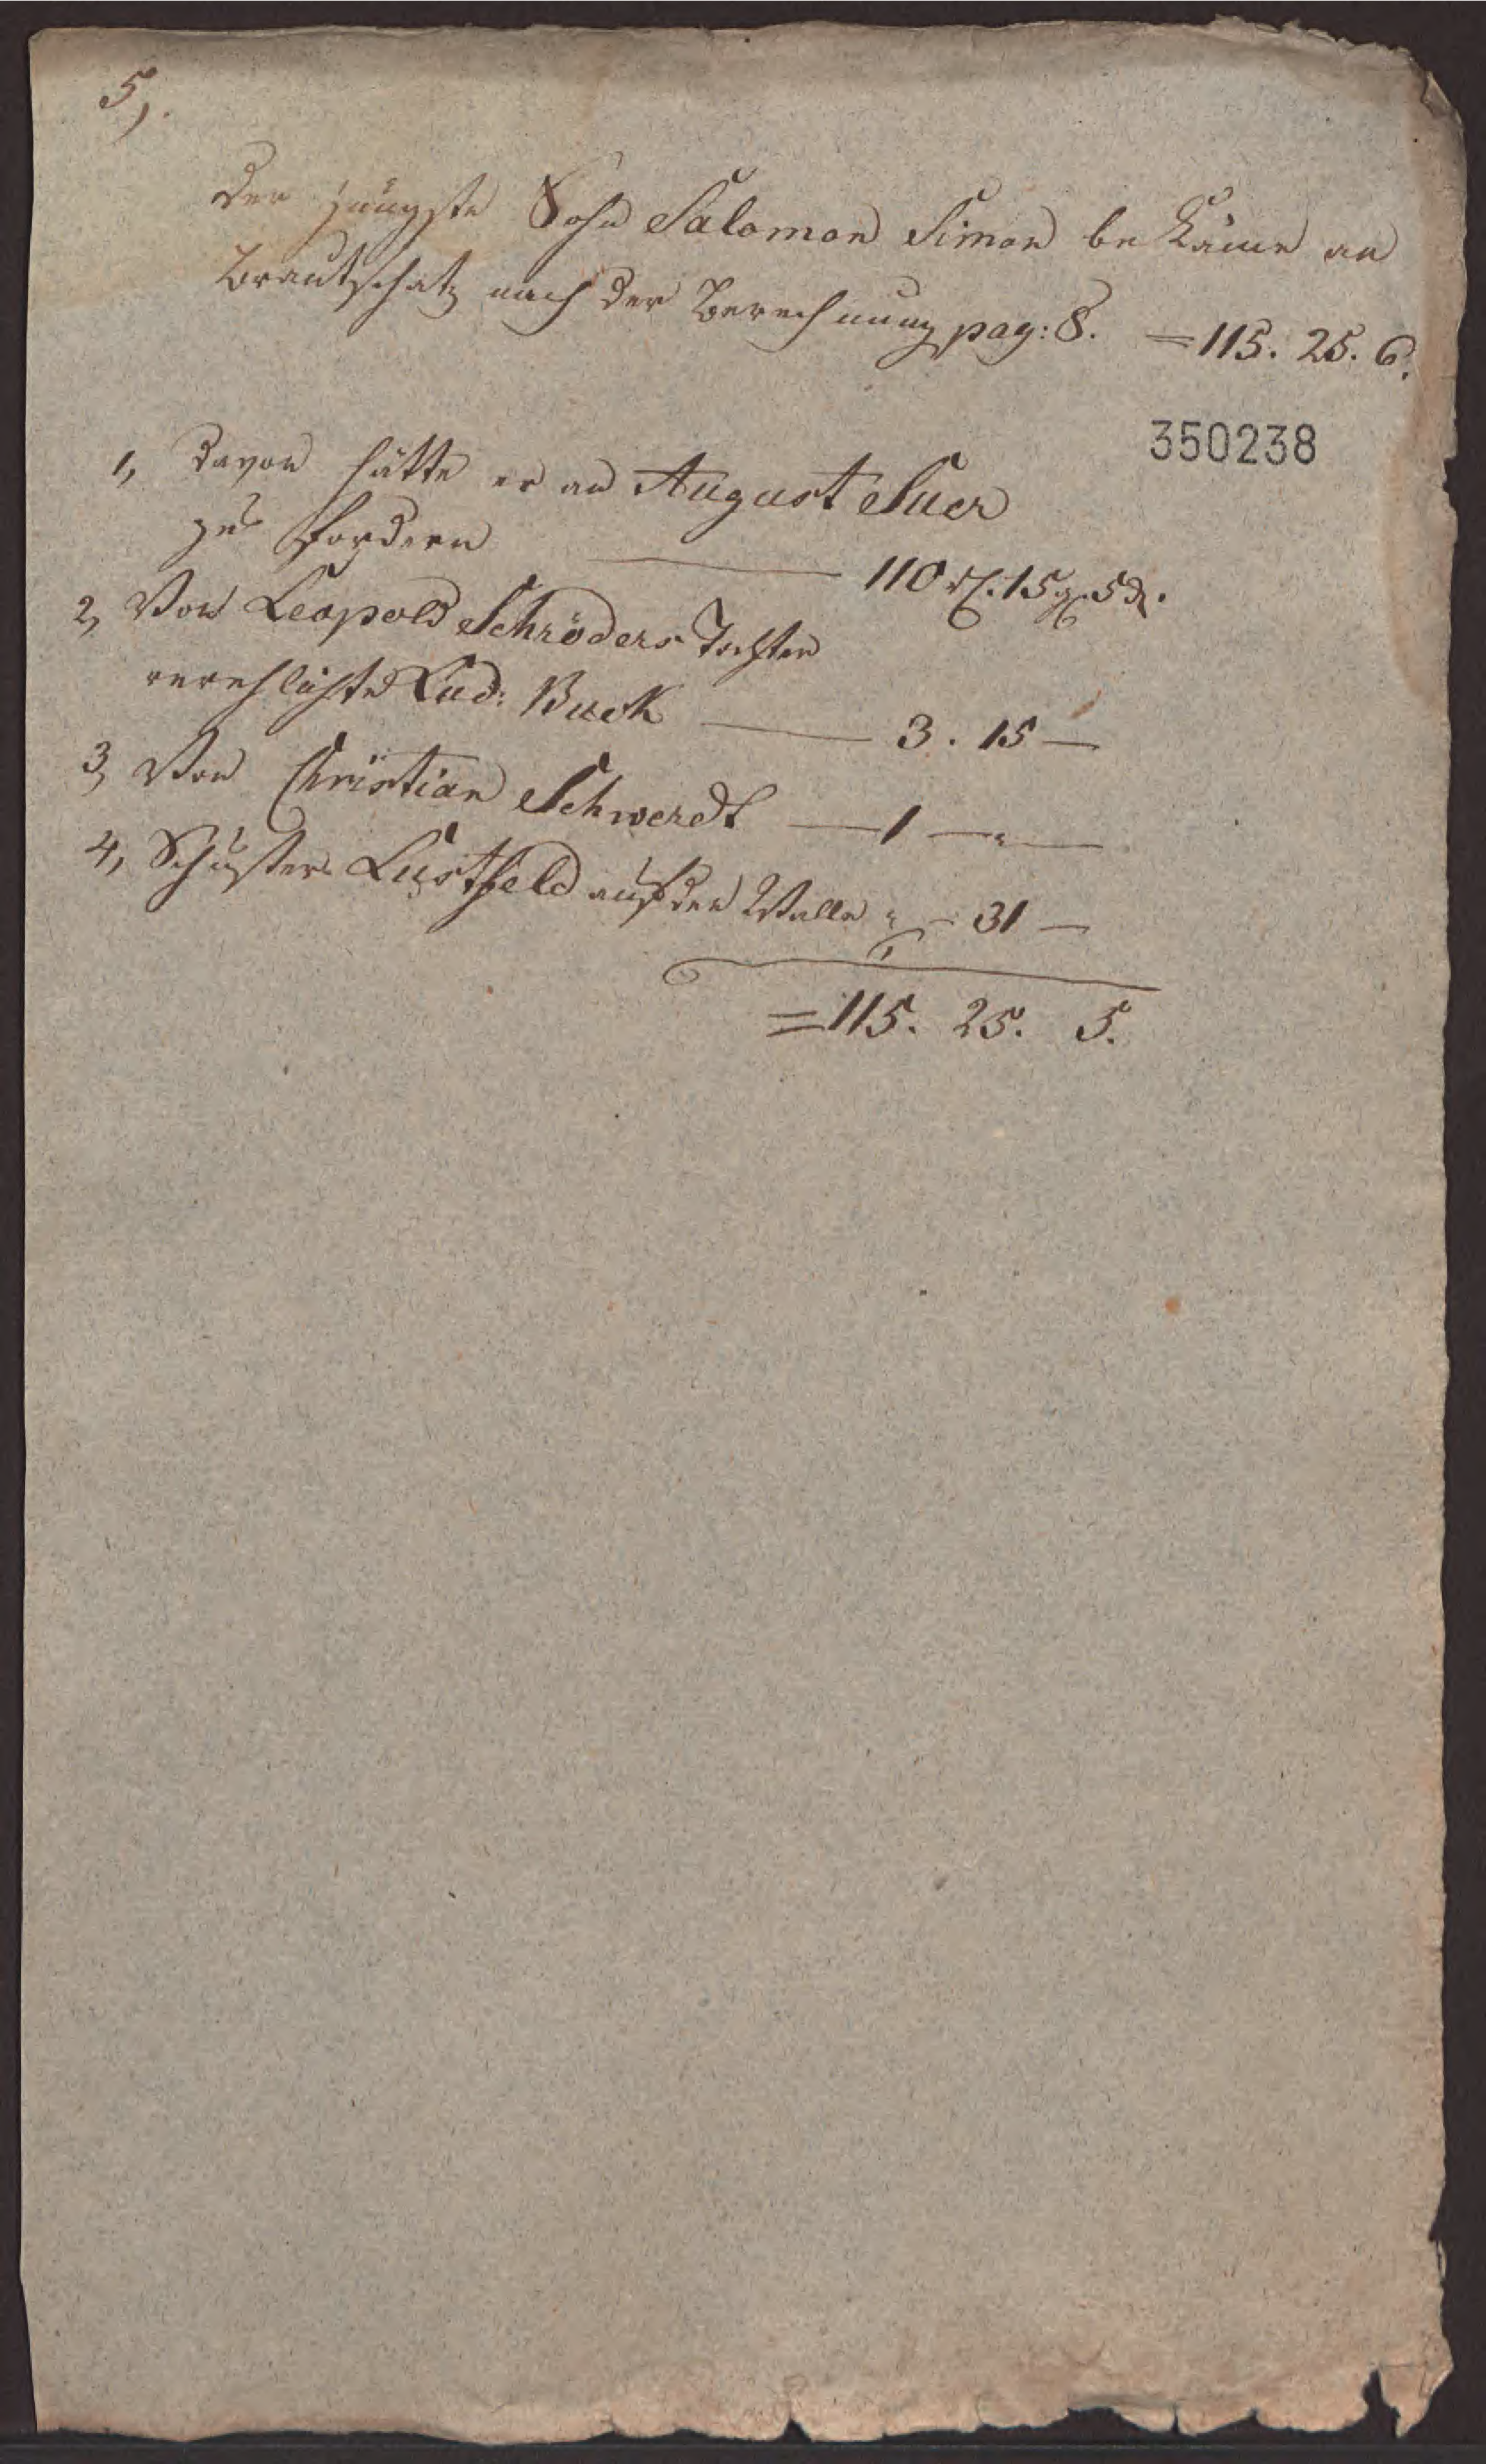 5,.
Der jüngste Sohn Salomon Simon bekäme an
Brautschatz nach der Berechnung pag: 8. = 115. 25. 6.
350238
1, Davon hätte er an August Suer
zu fordern — 110 rl. 15 g. 5 d.
2, Von Leopold Schröders Tochter
verehlichte Lud: Buck — 3. 15 —
3, Von Christian Schwerdt — 1 — " —
4, Schuster Lustfeld auf der Walle " — 31 —
= 115. 25. 5.